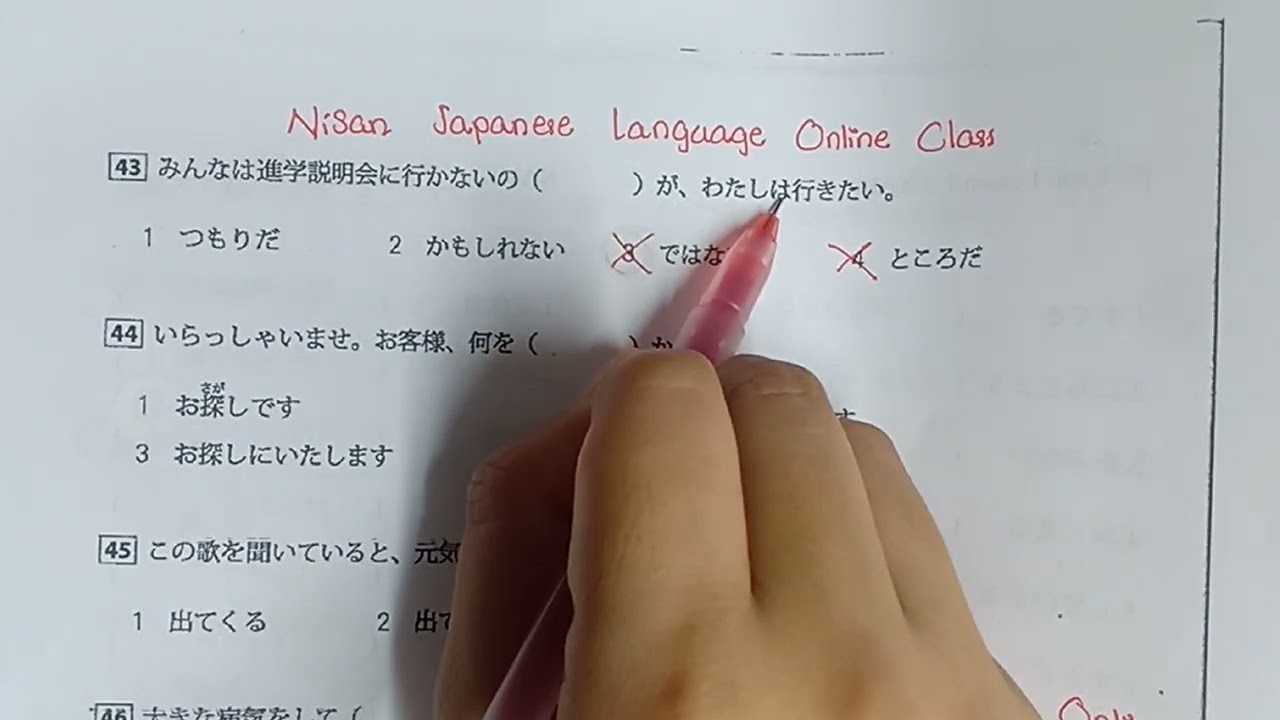 Nisan Japanese Language Online Class
43 みんなは進学説明会に行かないの（　　　）が、わたしは行きたい。
1 つもりだ　2 かもしれない　3 ではな　4 ところだ
44 いらっしゃいませ。お客様、何を（　　　）か
1 お探しです
さが
す
3 お探しにいたします
45 この歌を聞いていると、元気
1 出てくる　2 出て
46 大きな病気をして（
Only